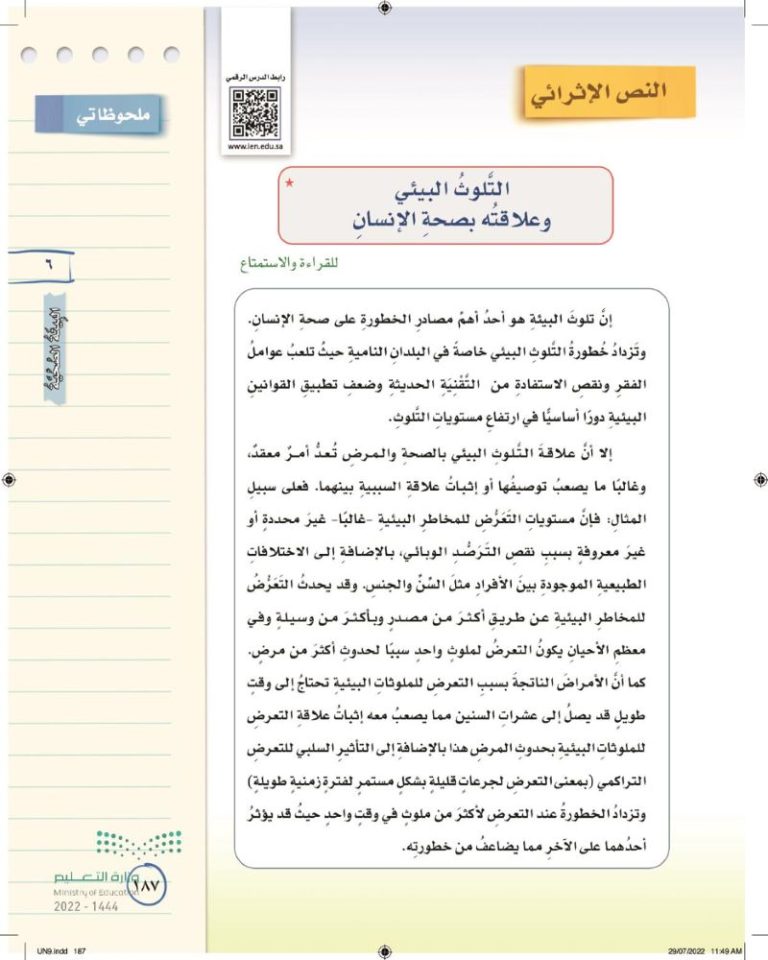 رابط الدرس الرقمي
www.ien.edu.sa
النص الإثرائي
ملحوظاتي
التَّلوثُ البيئي
وعلاقتُه بصحةِ الإنسانِ
للقراءة والاستمتاع
٦
إنَّ تلوثَ البيئةِ هو أحدُ أهمِّ مصادرِ الخطورةِ على صحةِ الإنسانِ.
وتَزدادُ خُطورةُ التَّلوثِ البيئي خاصةً في البلدانِ الناميةِ حيثُ تلعبُ عواملُ
الفقرِ ونقصِ الاستفادةِ من التَّقْنِيَةِ الحديثةِ وضعفِ تطبيقِ القوانينِ
البيئيةِ دورًا أساسيًّا في ارتفاعِ مستوياتِ التَّلوثِ.
إلا أنَّ علاقةَ التَّلوثِ البيئي بالصحةِ والمرضِ تُعدُّ أمرٌ معقدٌ،
وغالبًا ما يصعبُ توصيفُها أو إثباتُ علاقةِ السببيةِ بينهما. فعلى سبيلِ
المثالِ: فإنَّ مستوياتِ التَعَرُّضِ للمخاطرِ البيئيةِ -غالبًا- غيرَ محددةٍ أو
غيرَ معروفةٍ بسببِ نقصِ التَرَصُّدِ الوبائي، بالإضافةِ إلى الاختلافاتِ
الطبيعيةِ الموجودةِ بينَ الأفرادِ مثلَ السِّنِّ والجنسِ. وقد يحدثُ التَعَرُّضُ
للمخاطرِ البيئيةِ عن طريقِ أكثرَ من مصدرٍ وبأكثرَ من وسيلةٍ وفي
معظمِ الأحيانِ يكونُ التعرضُ لملوثٍ واحدٍ سببًا لحدوثِ أكثرَ من مرضٍ.
كما أنَّ الأمراضَ الناتجةَ بسببِ التعرضِ للملوثاتِ البيئيةِ تحتاجُ إلى وقتٍ
طويلٍ قد يصلُ إلى عشراتِ السنين مما يصعبُ معه إثباتُ علاقةِ التعرضِ
للملوثاتِ البيئيةِ بحدوثِ المرضِ هذا بالإضافةِ إلى التأثيرِ السلبي للتعرضِ
التراكمي (بمعنى التعرضِ لجرعاتٍ قليلةٍ بشكلٍ مستمرٍ لفترةٍ زمنيةٍ طويلةٍ)
وتزدادُ الخطورةُ عند التعرضِ لأكثرَ من ملوثٍ في وقتٍ واحدٍ حيثُ قد يؤثرُ
أحدُهما على الآخرِ مما يضاعفُ من خطورتِه.
وزارة التعليم
Ministry of Education
2022 - 1444
١٨٧
UN9.indd 187
29/07/2022 11:49 AM